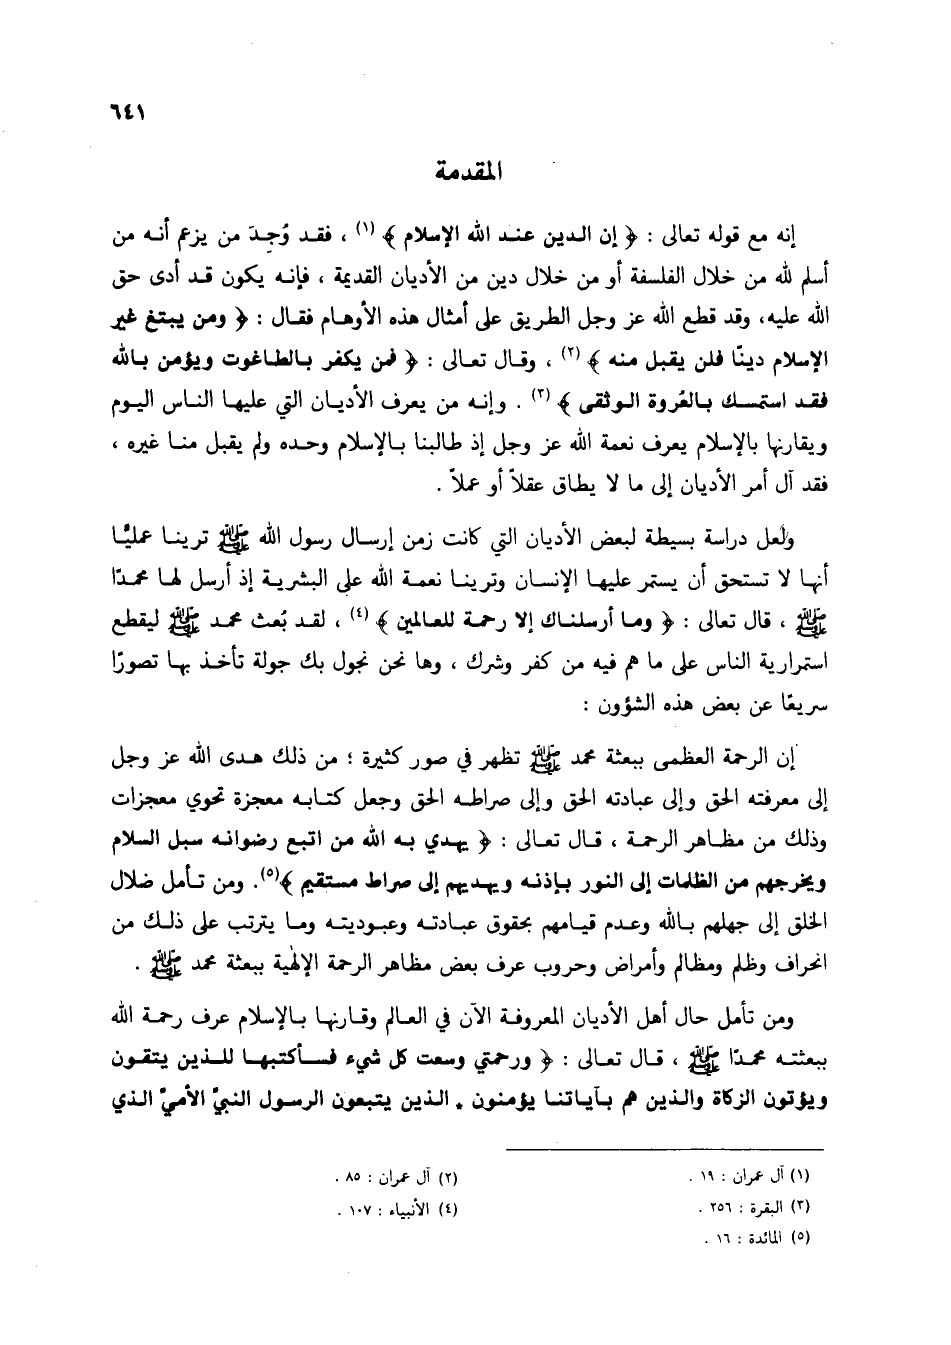 ٦٤١
المقدمة
إنه مع قوله تعالى : ﴿ إن الدين عنـد الله الإسلام ﴾ (١) ، فقـد وُجِدَ من يزعم أنـه من
أسلم لله من خلال الفلسفة أو من خلال دين من الأديان القديمة ، فإنـه يكون قـد أدى حق
الله عليه، وقد قطع الله عز وجل الطريق على أمثال هذه الأوهـام فقـال : ﴿ ومن يبتغ غير
الإسلام دينًا فلن يقبل منه ﴾ (٢) ، وقـال تعـالى : ﴿ فمن يكفر بـالطـاغوت ويؤمن بـالله
فقـد استمسـك بـالعُروة الـوثقى ﴾ (٣) . وإنـه من يعرف الأديـان التي عليهـا النـاس اليـوم
ويقارنها بالإسلام يعرف نعمة الله عز وجل إذ طالبنا بـالإسلام وحـده ولم يقبل منـا غيره ،
فقد آل أمر الأديان إلى ما لا يطاق عقلاً أو عملاً .
ولعل دراسة بسيطة لبعض الأديان التي كانت زمن إرسـال رسول الله ﷺ ترينـا عمليًّا
أنهـا لا تستحق أن يستمر عليهـا الإنسـان وترينـا نعمـة الله على البشريـة إذ أرسل لهـا محمـدًا
ﷺ ، قال تعالى : ﴿ ومـا أرسلنـاك إلا رحمـة للعـالمين ﴾ (٤) ، لقـد بُعث محمـد ﷺ ليقطع
استمرارية الناس على ما هم فيه من كفر وشرك ، وها نحن نجول بك جولة تأخـذ بهـا تصورًا
سريعًا عن بعض هذه الشؤون :
إن الرحمة العظمى ببعثة محمد ﷺ تظهر في صور كثيرة ؛ من ذلك هـدى الله عز وجل
إلى معرفته الحق وإلى عبادته الحق وإلى صراطـه الحق وجعل كتـابـه معجزة تحوي معجزات
وذلك من مظـاهر الرحمـة ، قـال تعـالى : ﴿ يهـدي بـه الله من اتبع رضوانـه سبل السلام
ويخرجهم من الظلمات إلى النور بـإذنـه ويهديهم إلى صراط مستقيم ﴾(٥). ومن تـأمل ضلال
الخلق إلى جهلهم بـالله وعـدم قيـامهم بحقوق عبـادتـه وعبـوديتـه ومـا يترتب على ذلـك من
انحراف وظلم ومظالم وأمراض وحروب عرف بعض مظاهر الرحمة الإلهية ببعثة محمد ﷺ .
ومن تأمل حال أهل الأديان المعروفـة الآن في العـالم وقـارنهـا بـالإسلام عرف رحمـة الله
ببعثتـه محمـدًا ﷺ ، قـال تعـالى : ﴿ ورحمتي وسعت كل شيء فسـأكتبهـا للـذين يتقـون
ويؤتون الزكاة والـذين هم بـآيـاتنـا يؤمنون ٭ الـذين يتبعون الرسول النبيَّ الأميَّ الـذي
(١) آل عمران : ١٩ .
(٢) آل عمران : ٨٥ .
(٣) البقرة : ٢٥٦ .
(٤) الأنبياء : ١٠٧ .
(٥) المائدة : ١٦ .